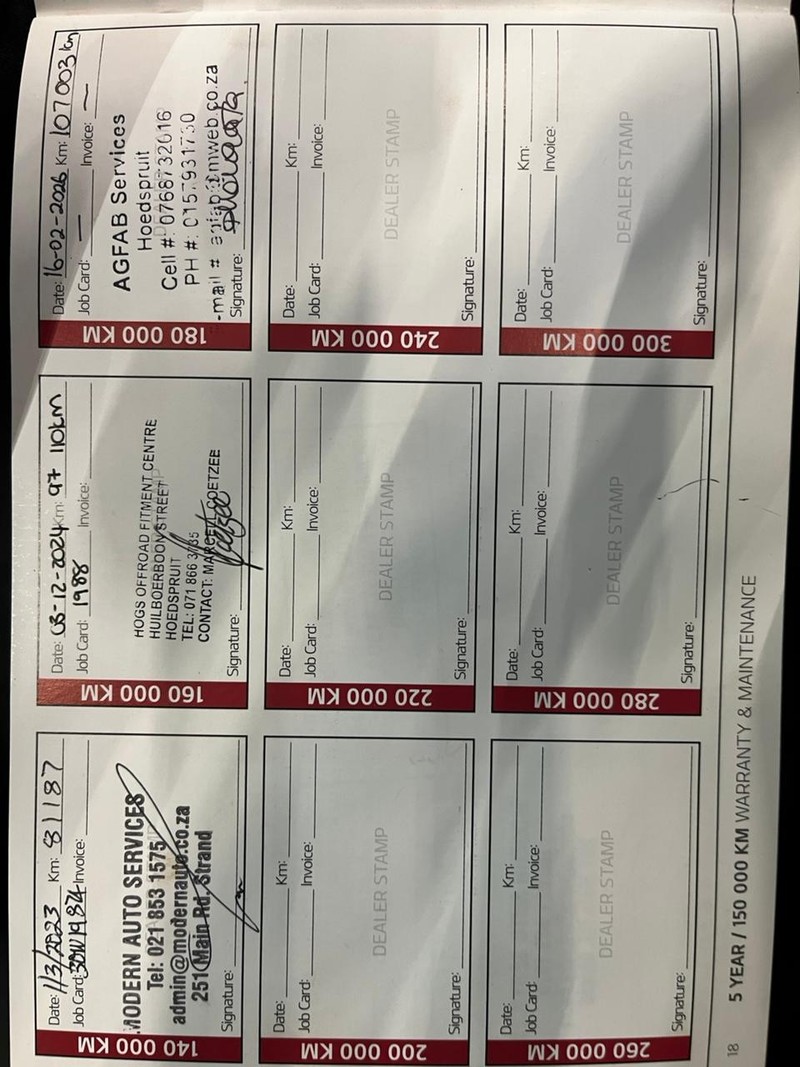 140 000 KM
Date: 1/3/2023 Km: 81187
Job Card: Invoice:
MODERN AUTO SERVICES
Tel: 021 853 1575
admin@modernauto.co.za
251 Main Rd, Strand
Signature:
160 000 KM
Date: 03-12-2024 Km: 97 110km
Job Card: 1988 Invoice:
HOGS OFFROAD FITMENT CENTRE
HUILBOERBOON STREET
HOEDSPRUIT
TEL: 071 866
CONTACT: COETZEE
Signature:
180 000 KM
Date: 16-02-2026 Km: 107003 km
Job Card: — Invoice: —
AGFAB Services
Hoedspruit
Cell #: 0768732616
PH #: 0157931730
-mail # @mweb.co.za
Signature:
200 000 KM
Date: Km:
Job Card: Invoice:
DEALER STAMP
Signature:
220 000 KM
Date: Km:
Job Card: Invoice:
DEALER STAMP
Signature:
240 000 KM
Date: Km:
Job Card: Invoice:
DEALER STAMP
Signature:
260 000 KM
Date: Km:
Job Card: Invoice:
DEALER STAMP
Signature:
280 000 KM
Date: Km:
Job Card: Invoice:
DEALER STAMP
Signature:
300 000 KM
Date: Km:
Job Card: Invoice:
DEALER STAMP
Signature:
18 5 YEAR / 150 000 KM WARRANTY & MAINTENANCE